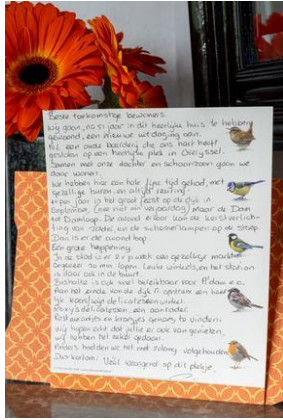 Beste toekomstige bewoners
Wij gaan, na 51 jaar in dit heerlijke huis te hebben
gewoond, een nieuwe uitdaging aan.
Nl. een oude boerderij die ons hart heeft
gestolen op een heerlijke plek in Overijssel.
Samen met onze dochter en schoonzoon gaan we
daar wonen.
We hebben hier een hele fijne tijd gehad, met
gezellige buren en altijd reuring.
per jaar is het groot feest op de dijk in
september, maar de Dam
tot Damloop. De avond ervoor kan de kerstverlichting
van zolder, en de schemerlampen op de stoep.
Dan is er de avondloop.
Een groot happening.
In de stad is er 2x p week een gezellige markt
ongeveer 20 min lopen. Leuke winkels, en het station
in daar ook in de buurt.
Bushalte is ook snel bereikbaar voor A'dam e.o.
Aan het einde van de dijk R. centrum een heerlijk
delicatessenwinkel.
Roxy's delicatessen, een aanrader.
Restaurantjes en kroegjes genoeg te vinden.
Wij hopen echt dat jullie er ook van genieten,
wij hebben het zeker gedaan.
Anders hadden we het niet zolang volgehouden
Dus kortom: Veel woongenot op dit plekje.